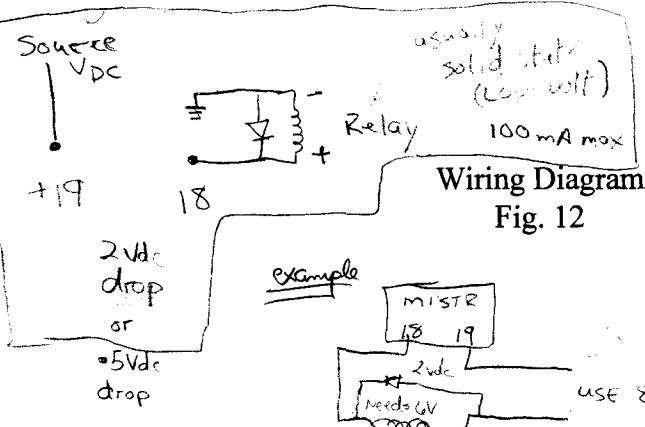 Source
VDC
usually
solid state
(Low volt)
Relay
100 mA max
-
+
+19
18
Wiring Diagram
Fig. 12
2 Vdc
drop
or
.5Vdc
drop
example
MISTR
18 19
2 vdc
Needs 6V
USE 8